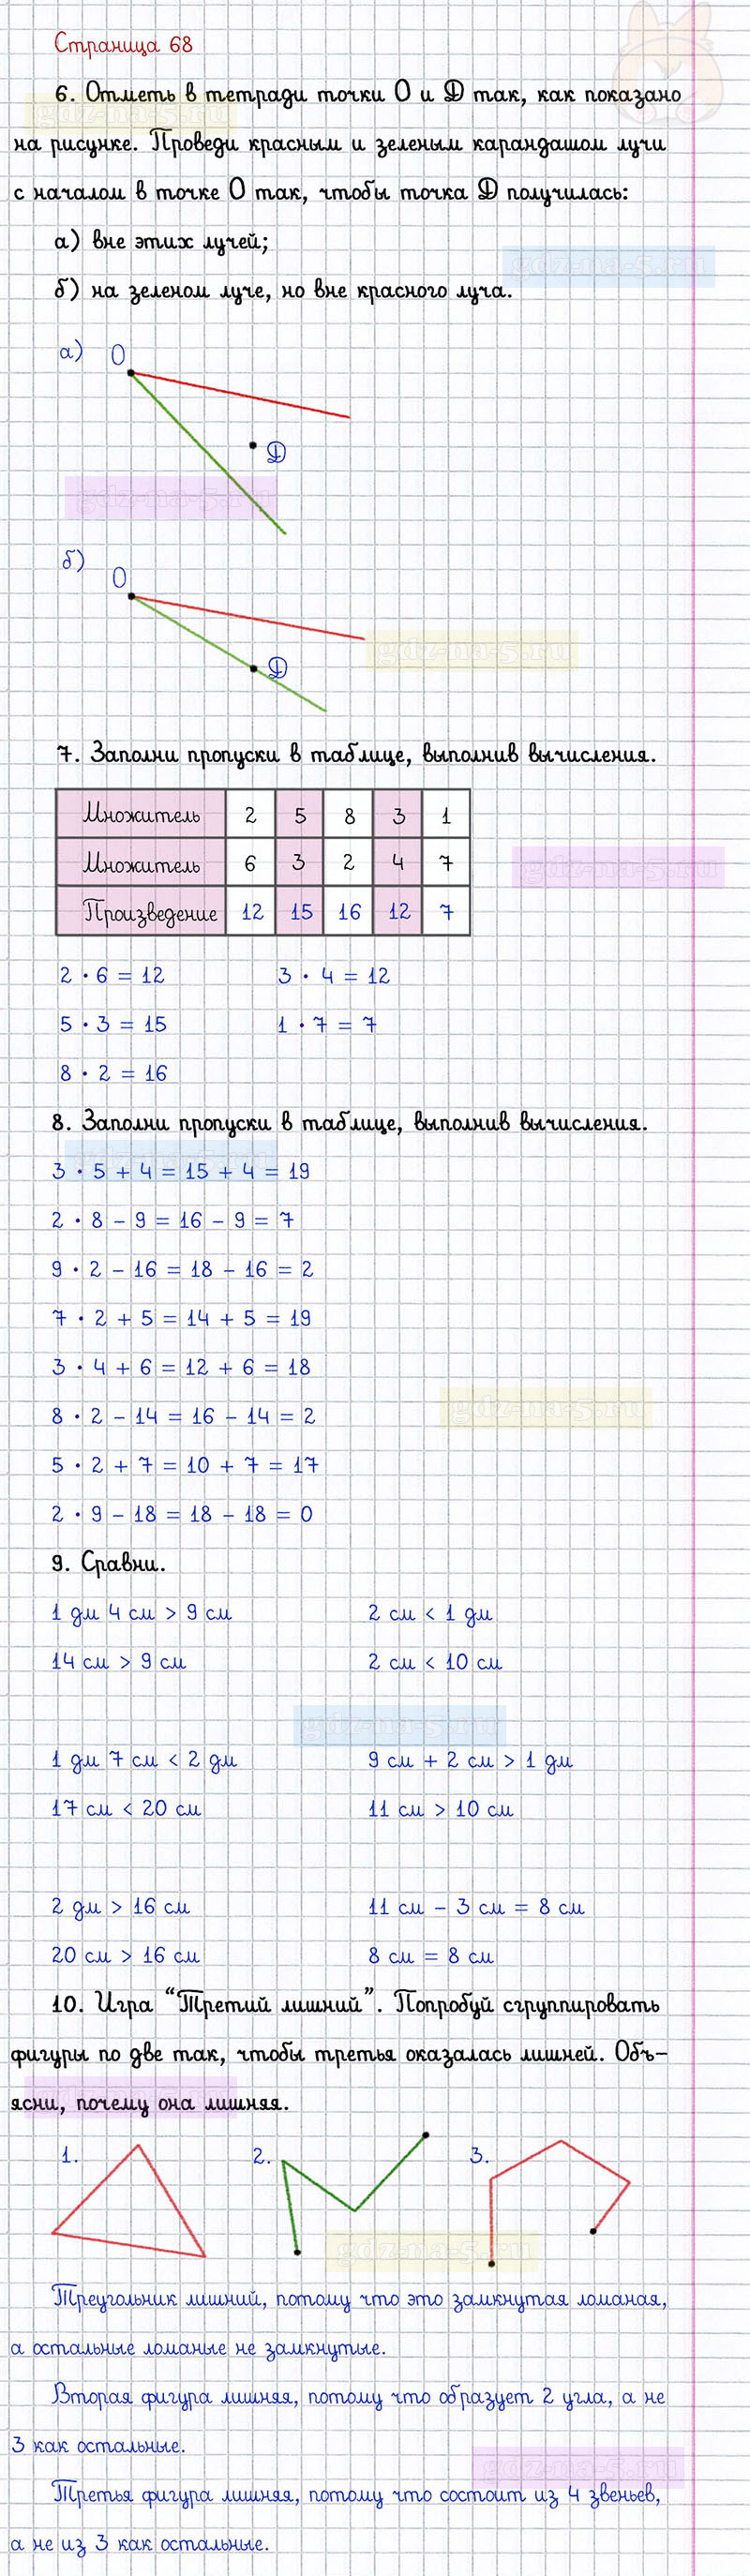 Страница 68
6. Отметь в тетради точки О и D так, как показано
на рисунке. Проведи красным и зеленым карандашом лучи
с началом в точке О так, чтобы точка D получилась:
а) вне этих лучей;
gdz-na-5.ru
б) на зеленом луче, но вне красного луча.
а) О
D
gdz-na-5.ru
б)
О
gdz-na-5.ru
D
7. Заполни пропуски в таблице, выполнив вычисления.
Множитель 2 5 8 3 1
Множитель 6 3 2 4 7
gdz-na-5.ru
Произведение 12 15 16 12 7
2 · 6 = 12 3 · 4 = 12
5 · 3 = 15 1 · 7 = 7
8 · 2 = 16
8. Заполни пропуски в таблице, выполнив вычисления.
3 · 5 + 4 = 15 + 4 = 19
2 · 8 – 9 = 16 – 9 = 7
9 · 2 – 16 = 18 – 16 = 2
7 · 2 + 5 = 14 + 5 = 19
3 · 4 + 6 = 12 + 6 = 18
8 · 2 – 14 = 16 – 14 = 2
gdz-na-5.ru
5 · 2 + 7 = 10 + 7 = 17
2 · 9 – 18 = 18 – 18 = 0
9. Сравни.
1 дм 4 см > 9 см 2 см < 1 дм
14 см > 9 см 2 см < 10 см
gdz-na-5.ru
1 дм 7 см < 2 дм 9 см + 2 см > 1 дм
17 см < 20 см 11 см > 10 см
2 дм > 16 см 11 см – 3 см = 8 см
20 см > 16 см 8 см = 8 см
10. Игра “Третий лишний”. Попробуй сгруппировать
фигуры по две так, чтобы третья оказалась лишней. Объ-
ясни, почему она лишняя.
1. 2. 3.
gdz-na-5.ru
Треугольник лишний, потому что это замкнутая ломаная,
а остальные ломаные не замкнутые.
Вторая фигура лишняя, потому что образует 2 угла, а не
3 как остальные.
gdz-na-5.ru
Третья фигура лишняя, потому что состоит из 4 звеньев,
а не из 3 как остальные.